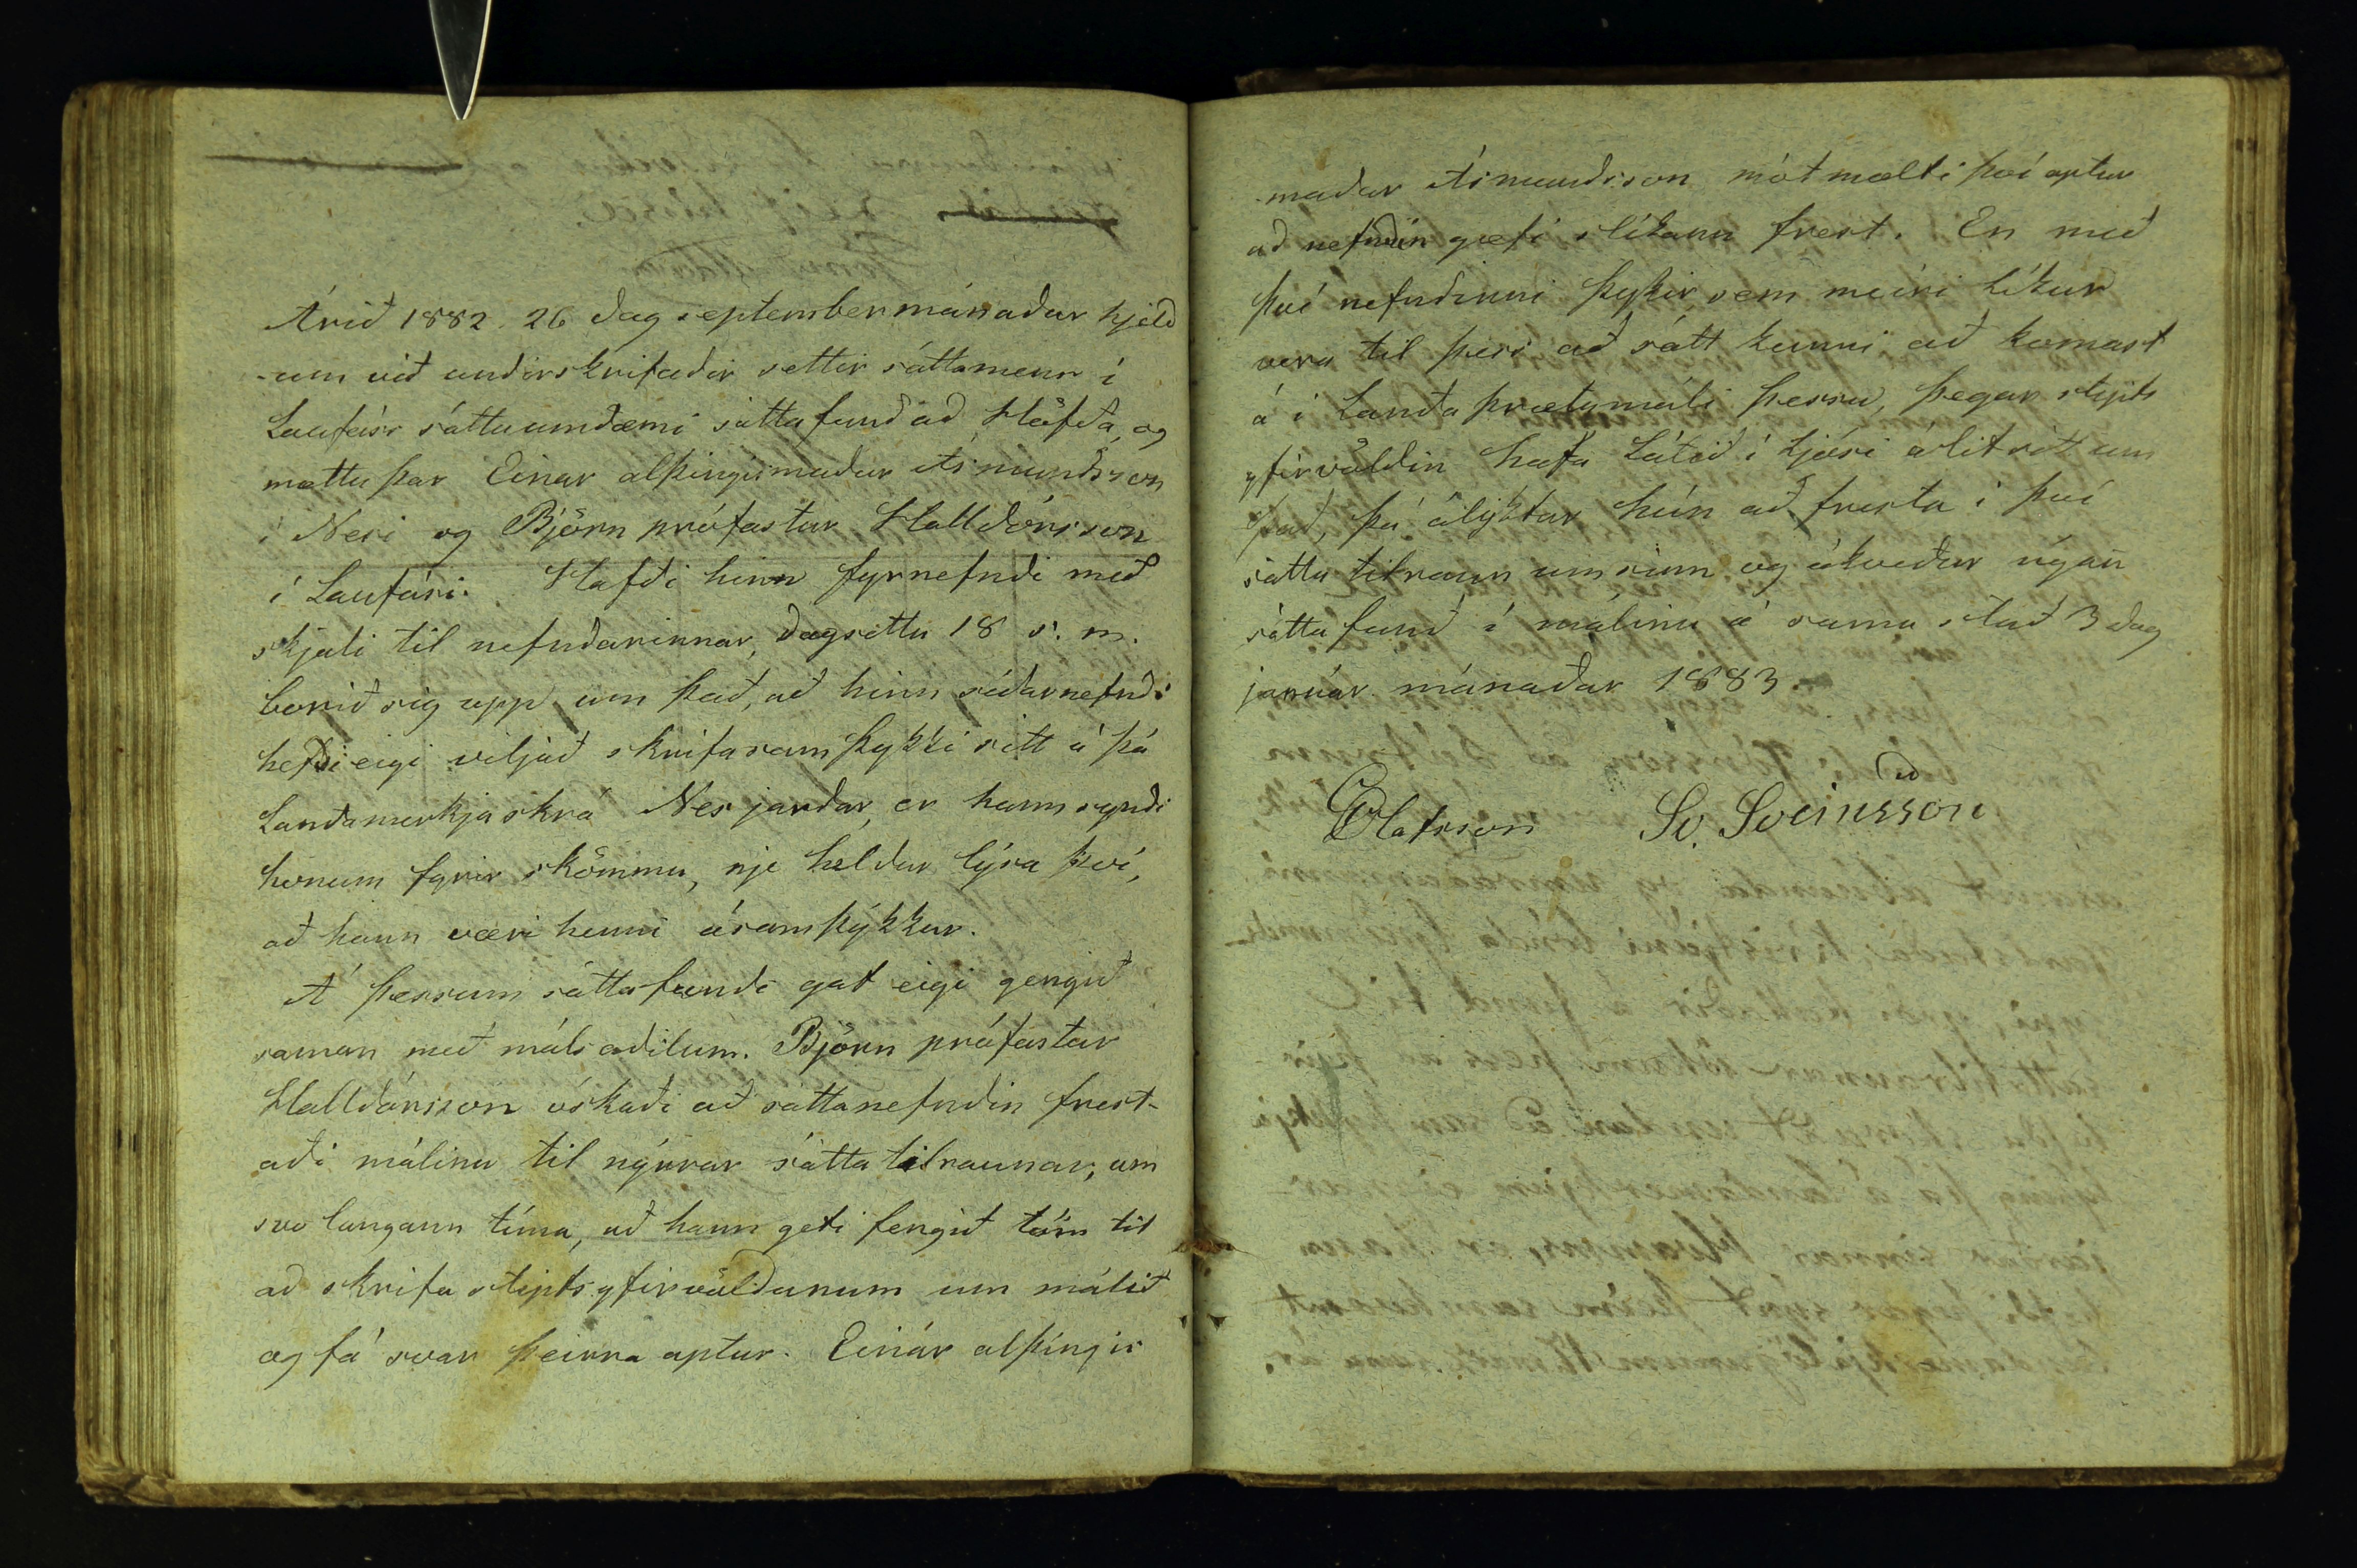 Árið 1882 26 dag septembermánaðar hjeld
-um við undirskrifaðir settir sáttamenn í
Laufáss sáttaumdæmi sáttafund að Höfða, og
mættu þar Einar alþingismaður Ásmundsson
í Nesi og Björn prófastur Halldórsson
í Laufási. Hafði hinn fyrnefndi með
skjali til nefndarinnar, dagsettu 18 s. m.
borið sig upp um það, að hinn síðarnefndi
hefði eigi viljað skrifa samþykki sitt á þá
Landamerkjaskrá Nes jarðar, er hann syndi
honum fyrir skömmu, nje heldur lýsa því,
að hann væri henni ósamþykkur.
Á þessum sáttafundi gat eigi gengið
saman með málsaðilum. Björn prófastur
Halldórsson óskaði að sáttanefndin frest-
aði málinu til nýrrar sáttatilraunar, um
svo langann tíma, að hann geti fengið tóm til
að skrifa stiptsyfirvöldunum um málið
og fá svar þeirra aptur. Einar alþingis
maður Ásmundsson mótmælti því aptur
að nefndin gæfi slíkann frest. En með
því nefndinni þykir sem meiri líkur
veru til þess að sátt kunni að komast
á í Landaþrætumáli þessu, þegar stipts
yfirvöldin hafa látið í ljósi álit sitt um
það, þá ályktar hún að fresta í því
sátta tilraun um sinn og ákveður nýan
sáttafund í málinu á sama stað 3 dag
janúar mánaðar 1883.
GOlafsson Sv. Sveinsson